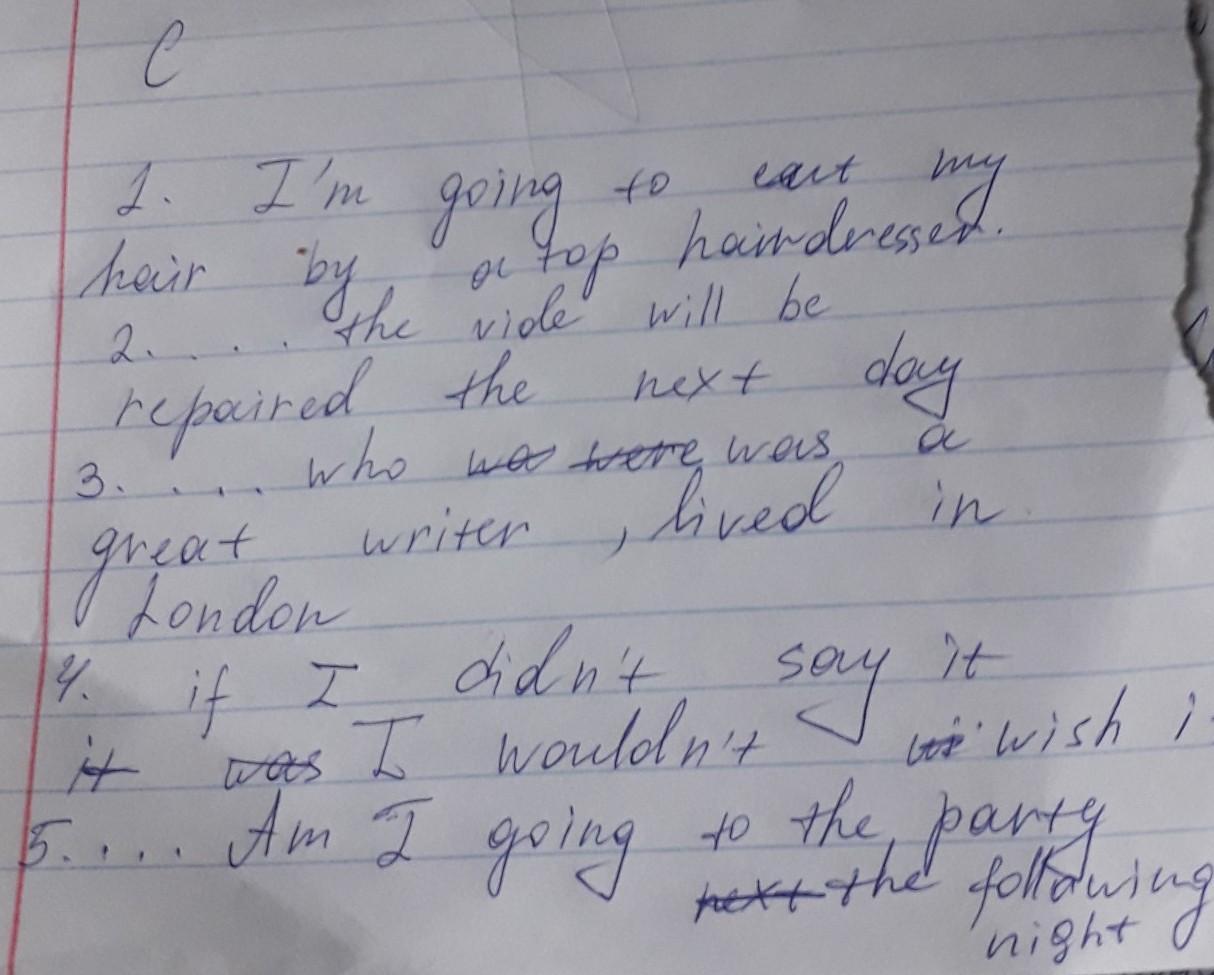 C
1. I'm going to cut my
hair by a top hairdresser.
2. . . . . the vide will be
repaired the next day
3. . . . . who wa were was a
great writer, lived in
London
4. if I didn't say it
it was I wouldn't wish i
5. . . . . Am I going to the party
next the following
night